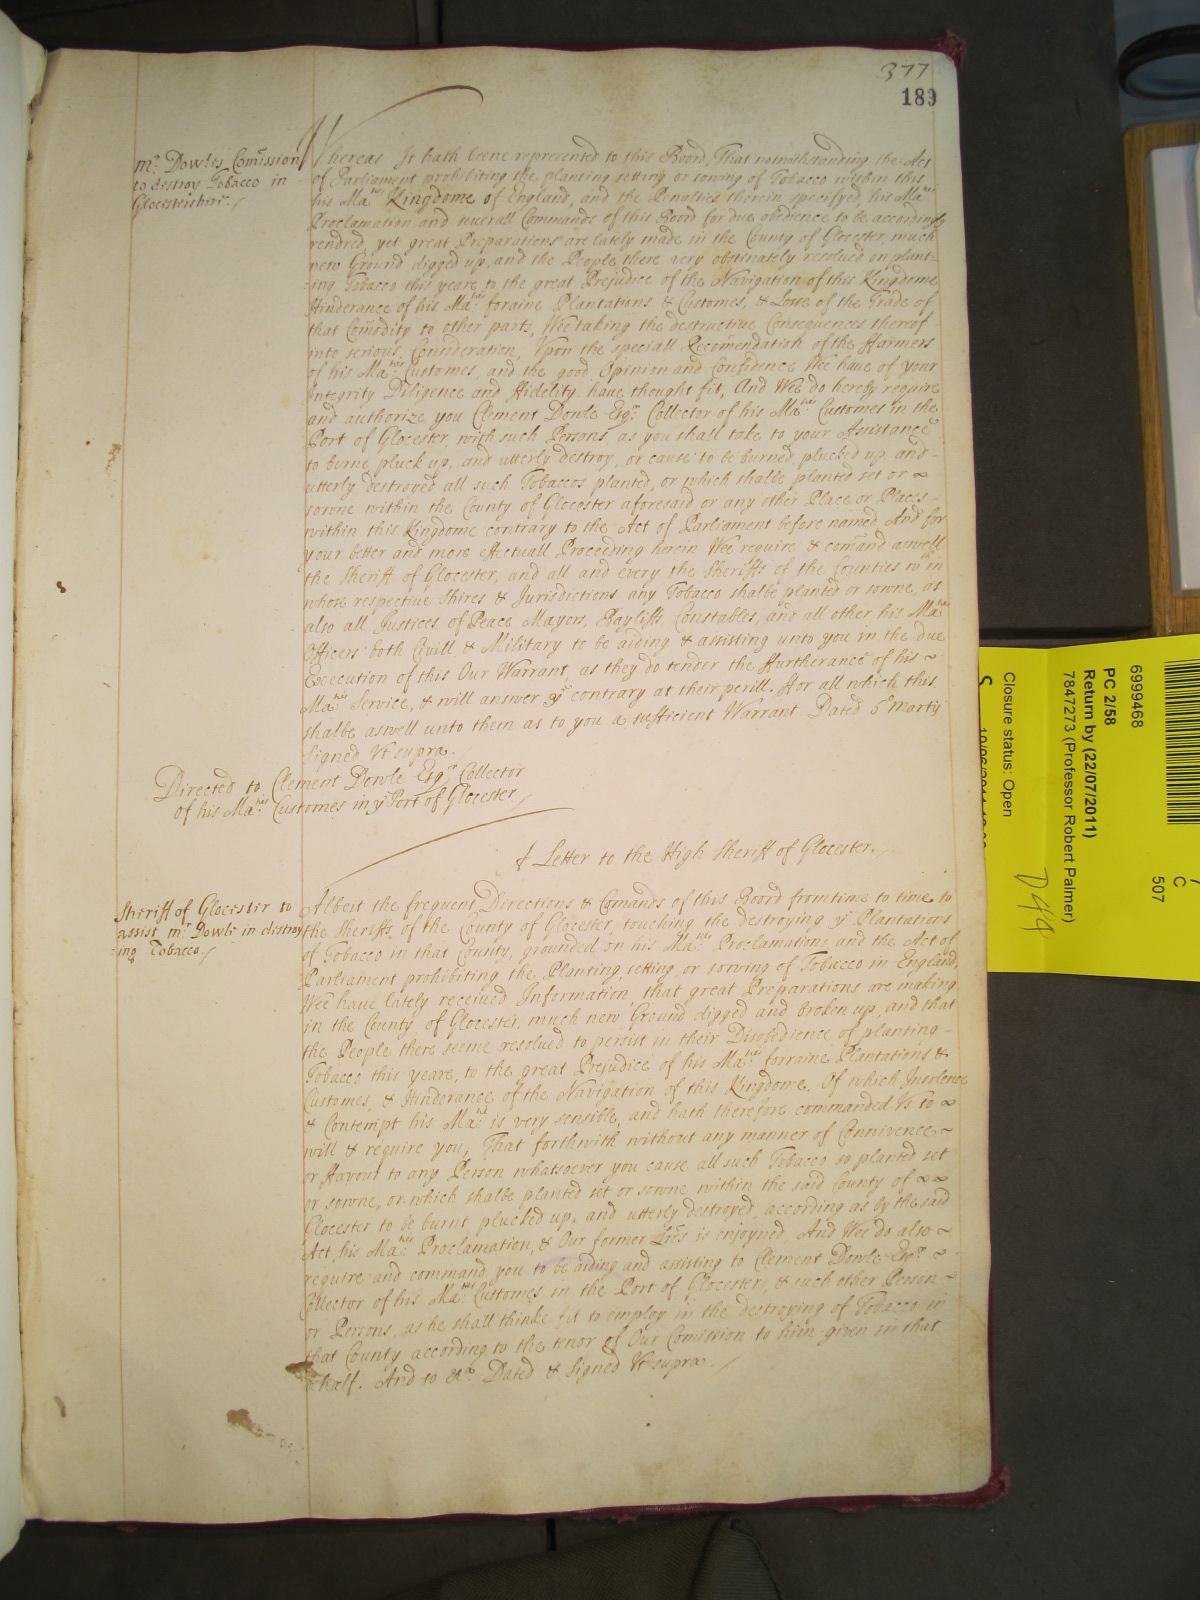 377
189
mr. Dowles Comission
to destroy Tobacco in
Glocestershire./
Whereas It hath beene represented to this Board, That notwithstanding the Act
of Parliament prohibiting the planting setting or sowing of Tobacco within this
his Ma:ties Kingdome of England, and the Penalties therein specifyed, his Ma:ties
Proclamation and severall Commands of this Board for due obedience to be accordingly
rendred, yet great Preparations are lately made in the County of Glocester, much
new Ground digged up, and the People there very obstinately resolved on plant-
:ing Tobacco this yeare, to the great Prejudice of the Navigation of this Kingdome
Hinderance of his Ma:ties forraine Plantations & Customes, & Losse of the Trade of
that Comodity to other parts, Wee taking the destructive Consequences thereof
into serious Consideration, Upon the speciall Recomendation of the Farmers
of his Ma:ties Customes, and the good Opinion and Confidence Wee have of your
Integrity Diligence and Fidelity have thought fit, And Wee do hereby require
and authorize you Clement Dowle Esqr. Collector of his Ma:ties Customes in the
Port of Glocester with such Persons, as you shall take to your Assistance
to burne pluck up, and utterly destroy, or cause to be burned plucked up, and
utterly destroyed all such Tobaccos planted, or which shalbe planted set or
sowne within the County of Glocester aforesaid or any other Place or Places
within this Kingdome contrary to the Act of Parliament before named And for
your better and more effectuall Proceeding herein Wee require & comand aswell
the Sheriff of Glocester, and all and every the Sheriffs of the Counties wthin
whose respective Shires & Jurisdictions any Tobacco shalbe planted or sowne, as
also all Justices of Peace Mayors, Bayliffs, Constables, and all other his Ma:ties
Officers both Civill & Military to be aiding & assisting unto you in the due
Execution of this Our Warrant, as they do tender the Furtherance of his
Ma:ties Service, & will answer ye contrary at their perill. For all which this
shalbe aswell unto them as to you a sufficient Warrant Dated 6o Martij
Signed Vt supra.
Directed to Clement Dowle Esqr. Collector
of his Ma:ties Customes in ye Port of Glocester./
A Letter to the High Sheriff of Glocester./
Sheriff of Glocester to
assist mr. Dowle in destroy
:ing Tobacco./
Albeit the frequent Directions & Comands of this Board from time to time to
the Sheriffs of the County of Glocester, touching the destroying ye Plantations
of Tobacco in that County, grounded on his Ma:ties Proclamations, and the Act of
Parliament prohibiting the Planting, setting, or sowing of Tobacco in England,
Wee have lately received Information, that great Preparations are making
in the County of Glocester, much new Ground digged and broken up, and that
the People there seeme resolved to persist in their Disobedience of planting
Tobacco this yeare, to the great Prejudice of his Ma:ties forraine Plantations &
Customes, & Hinderance of the Navigation of this Kingdome. Of which Insolence
& Contempt his Ma:tie is very sensible, and hath therefore commanded Us to
will & require you, That forthwith without any manner of Connivence
or Favour to any Person whatsoever you cause all such Tobacco so planted set
or sowne, or which shalbe planted set or sowne within the said County of
Glocester to be burnt plucked up, and utterly destroyed, according as by the said
Act, his Ma:ties Proclamation, & Our former Lres is enjoyned, And Wee do also
require and command you to be aiding and assisting to Clement Dowle Esqr.
Collector of his Ma:ties Customes in the Port of Glocester, & such other Person
or Persons, as he shall thinke fit to employ in the destroying of Tobacco in
that County according to the tenor of Our Comission to him given in that
behalf. And so &a. Dated & Signed Vt supra./
6999468
PC 2/58
Return by (22/07/2011)
7847273 (Professor Robert Palmer)
Closure status: Open
C
507
D44